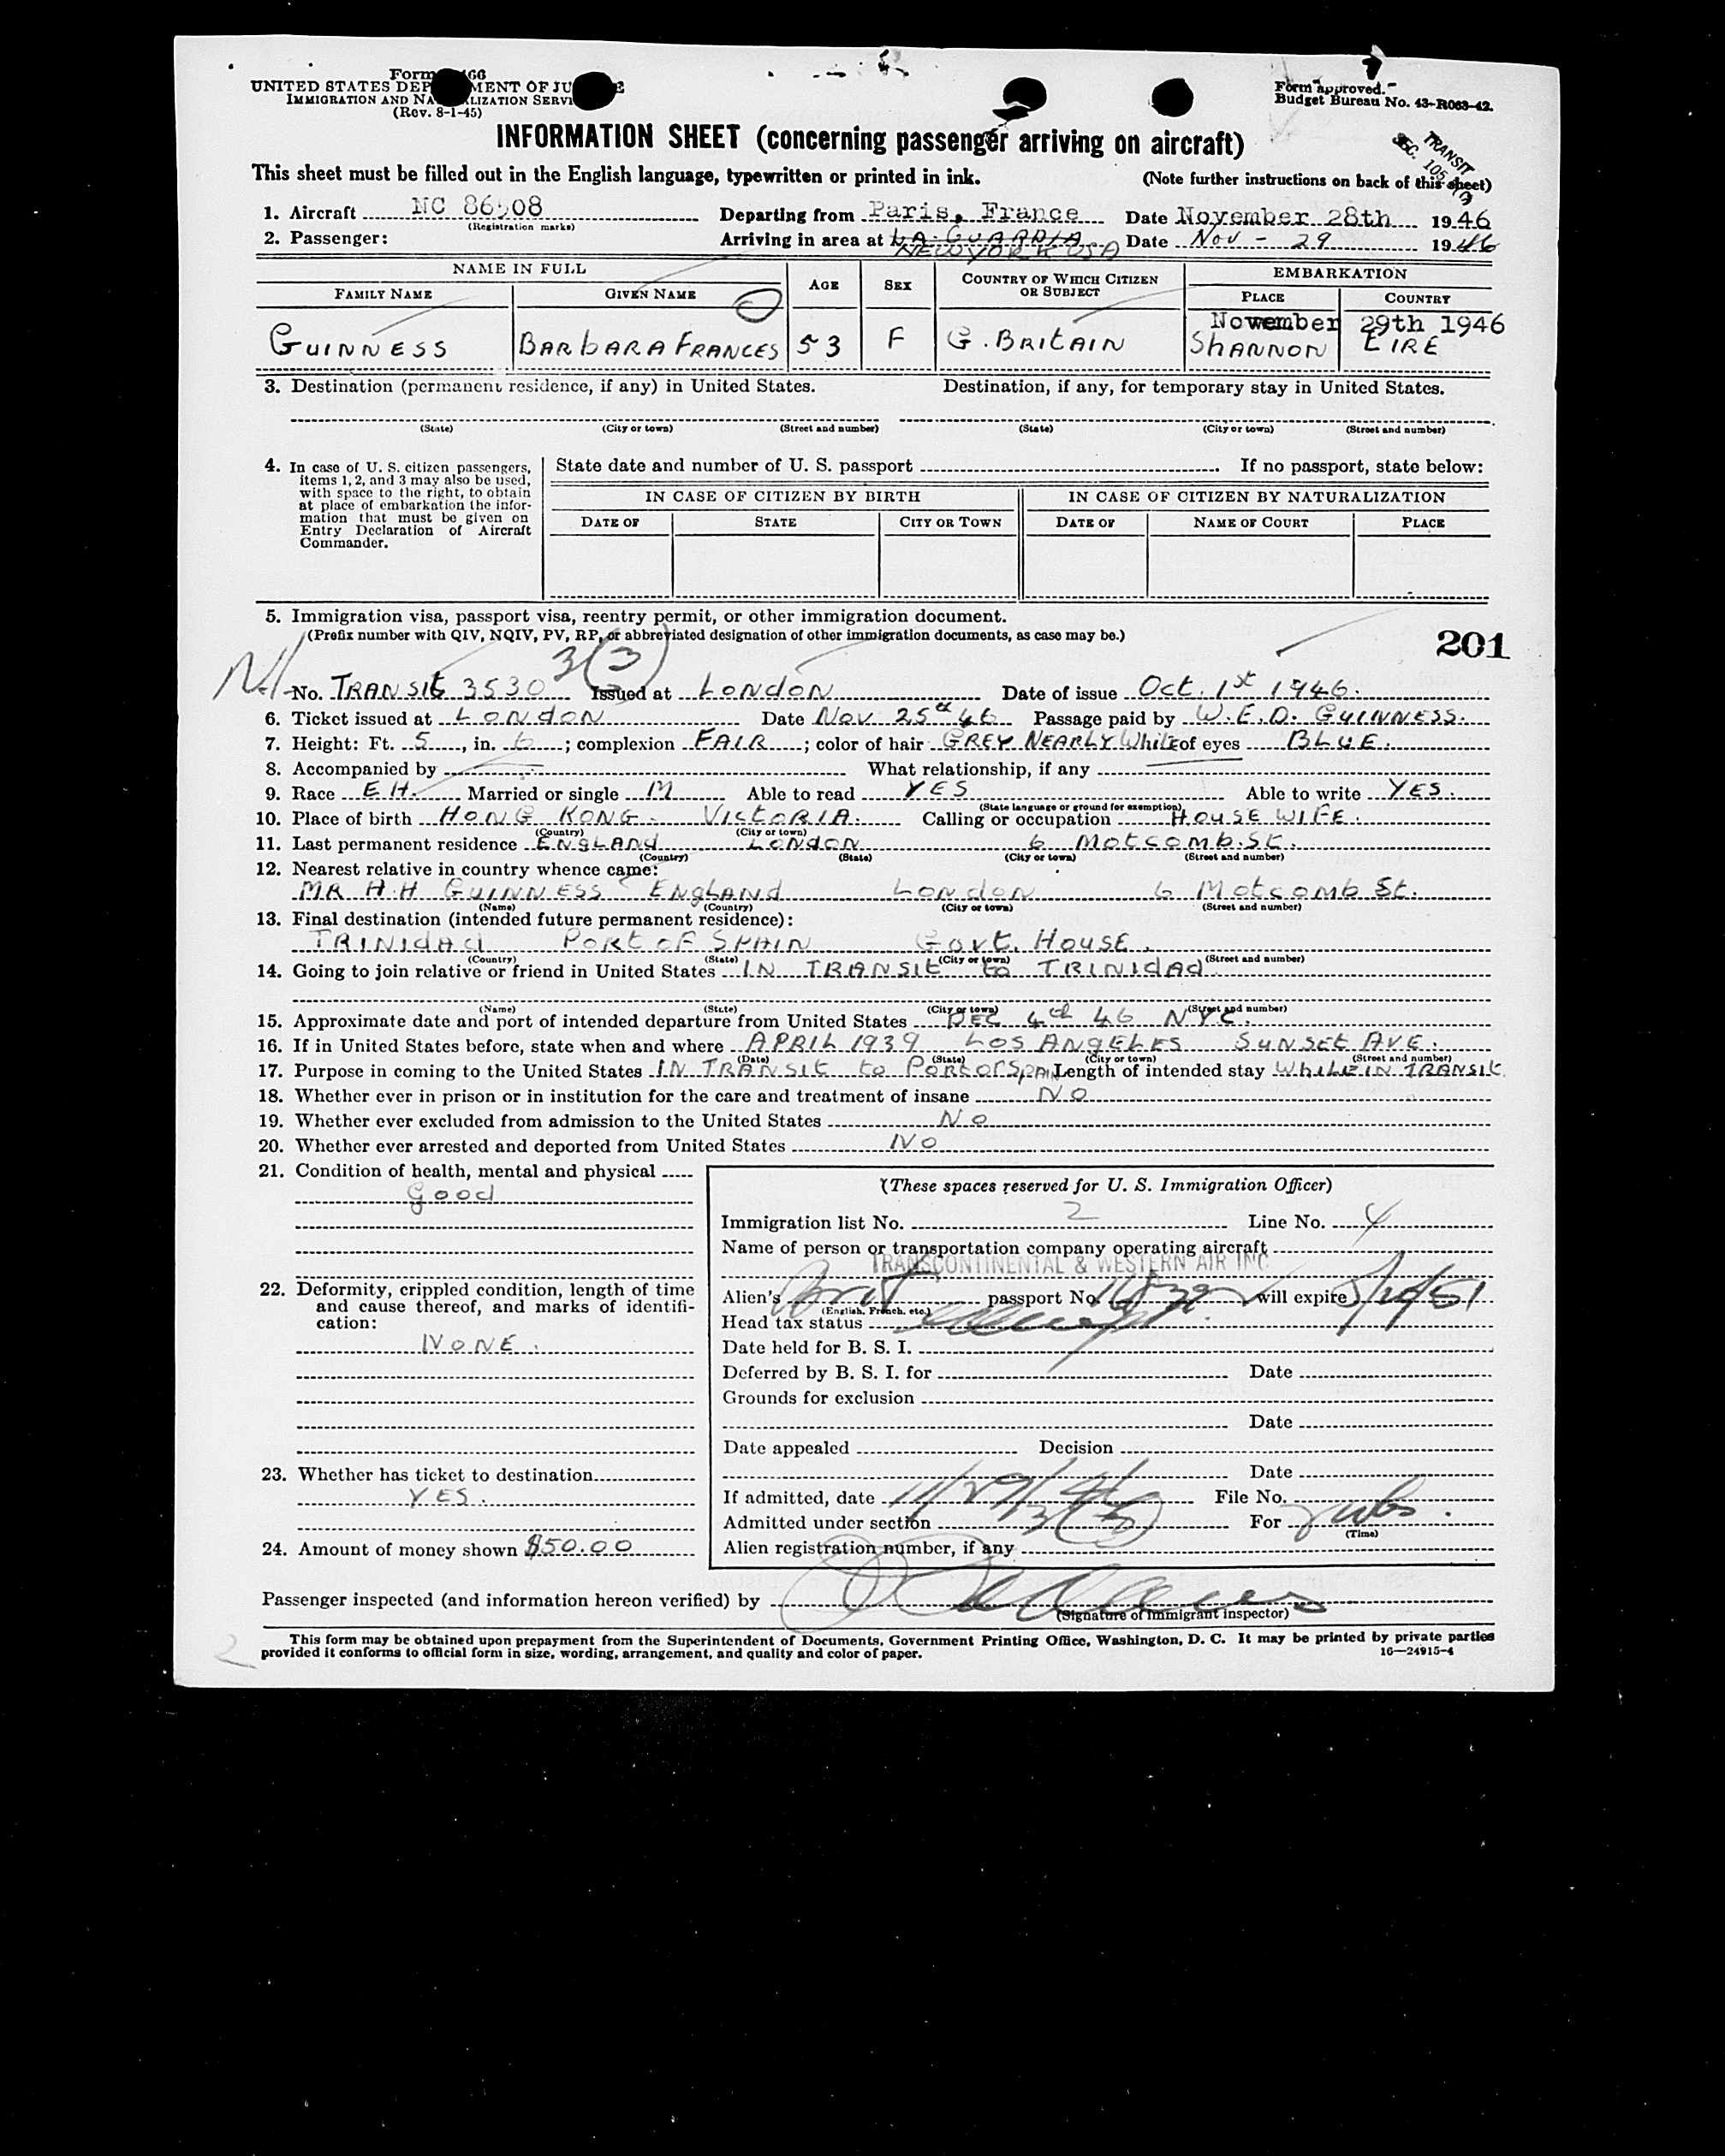 Form 466
UNITED STATES DEPARTMENT OF JUSTICE
IMMIGRATION AND NATURALIZATION SERVICE
(Rev. 8-1-45)
Form approved.
Budget Bureau No. 43-R063-42.
TRANSIT
SEC. 105
INFORMATION SHEET (concerning passenger arriving on aircraft)
This sheet must be filled out in the English language, typewritten or printed in ink. (Note further instructions on back of this sheet)
1. Aircraft NC 86508 Departing from Paris, France Date November 28th 1946
(Registration marks)
2. Passenger: Arriving in area at LA GUARDIA Date Nov - 29 1946
NEW YORK USA
NAME IN FULL AGE SEX COUNTRY OF WHICH CITIZEN OR SUBJECT EMBARKATION
FAMILY NAME GIVEN NAME PLACE COUNTRY
November 29th 1946
GUINNESS BARBARA FRANCES 53 F G. BRITAIN SHANNON EIRE
3. Destination (permanent residence, if any) in United States. Destination, if any, for temporary stay in United States.
(State) (City or town) (Street and number) (State) (City or town) (Street and number)
4. In case of U. S. citizen passengers, items 1, 2, and 3 may also be used, with space to the right, to obtain at place of embarkation the information that must be given on Entry Declaration of Aircraft Commander.
State date and number of U. S. passport If no passport, state below:
IN CASE OF CITIZEN BY BIRTH IN CASE OF CITIZEN BY NATURALIZATION
DATE OF STATE CITY OR TOWN DATE OF NAME OF COURT PLACE
5. Immigration visa, passport visa, reentry permit, or other immigration document.
(Prefix number with QIV, NQIV, PV, RP, or abbreviated designation of other immigration documents, as case may be.)
201
3(3)
No. TRANSIT 3530 Issued at LONDON Date of issue Oct. 1st 1946.
6. Ticket issued at LONDON Date Nov 25th 46 Passage paid by W.E.D. GUINNESS.
7. Height: Ft. 5, in. 6; complexion FAIR; color of hair GREY NEARLY White of eyes BLUE.
8. Accompanied by What relationship, if any
9. Race EH. Married or single M Able to read YES Able to write YES.
(State language or ground for exemption)
10. Place of birth HONG KONG. VICTORIA. Calling or occupation HOUSE WIFE.
(Country) (City or town)
11. Last permanent residence ENGLAND LONDON 6 MOTCOMB.ST.
(Country) (State) (City or town) (Street and number)
12. Nearest relative in country whence came:
MR H.H GUINNESS ENGLAND LONDON 6 MOTCOMB St.
(Name) (Country) (City or town) (Street and number)
13. Final destination (intended future permanent residence):
TRINIDAD PORT OF SPAIN GOVT. HOUSE.
(Country) (State) (City or town) (Street and number)
14. Going to join relative or friend in United States IN TRANSIT to TRINIDAD
(Name) (State) (City or town) (Street and number)
15. Approximate date and port of intended departure from United States DEC 4th 46 NYC.
16. If in United States before, state when and where APRIL 1939 LOS ANGELES SUNSET AVE.
(Date) (State) (City or town) (Street and number)
17. Purpose in coming to the United States IN TRANSIT to PORT OF SPAIN Length of intended stay WHILE IN TRANSIT.
18. Whether ever in prison or in institution for the care and treatment of insane NO
19. Whether ever excluded from admission to the United States NO
20. Whether ever arrested and deported from United States NO
21. Condition of health, mental and physical
Good
22. Deformity, crippled condition, length of time and cause thereof, and marks of identification:
NONE.
23. Whether has ticket to destination
YES.
24. Amount of money shown $50.00
(These spaces reserved for U. S. Immigration Officer)
Immigration list No. 2 Line No. 4
Name of person or transportation company operating aircraft
TRANSCONTINENTAL & WESTERN AIR INC
Alien's Brit passport No. will expire
(English, French, etc.)
Head tax status
Date held for B. S. I.
Deferred by B. S. I. for Date
Grounds for exclusion
Date
Date appealed Decision
Date
If admitted, date 11/29/46 File No.
Admitted under section 3(3) For
(Time)
Alien registration number, if any
Passenger inspected (and information hereon verified) by
(Signature of immigrant inspector)
This form may be obtained upon prepayment from the Superintendent of Documents, Government Printing Office, Washington, D. C. It may be printed by private parties
provided it conforms to official form in size, wording, arrangement, and quality and color of paper. 16—24915-4
2